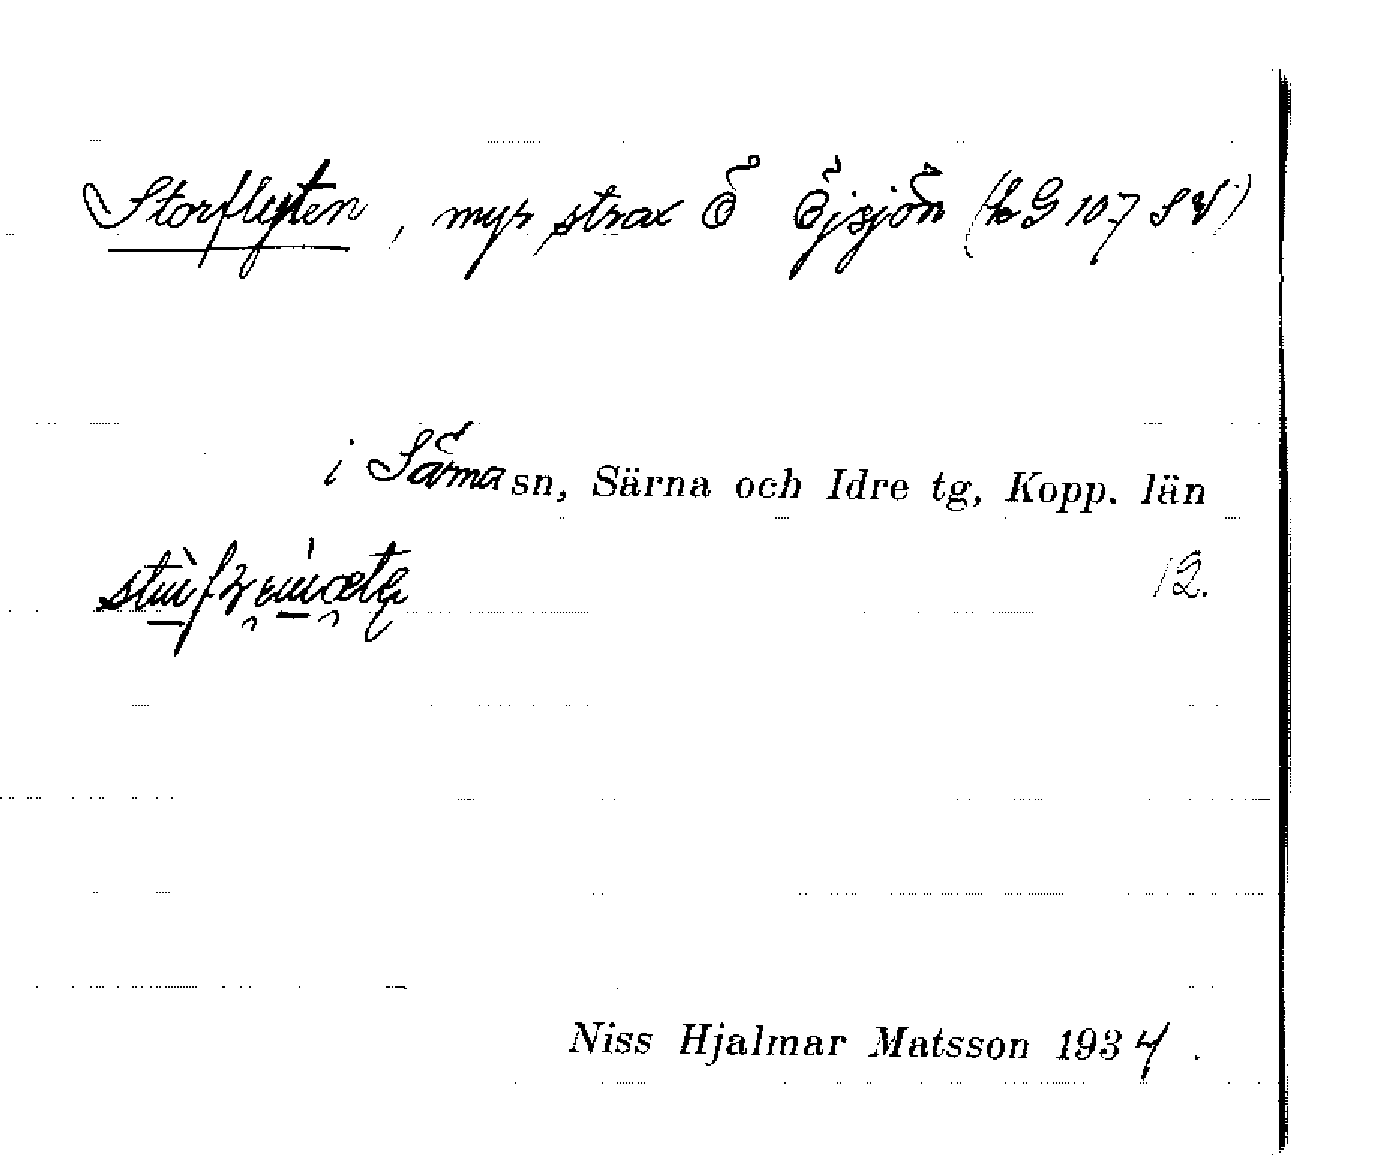 Storflyten, myr strax Ö Öjsjön (kG 107 SV)
i Särna sn, Särna och Idre tg, Kopp. län
12.
Niss Hjalmar Matsson 1934.